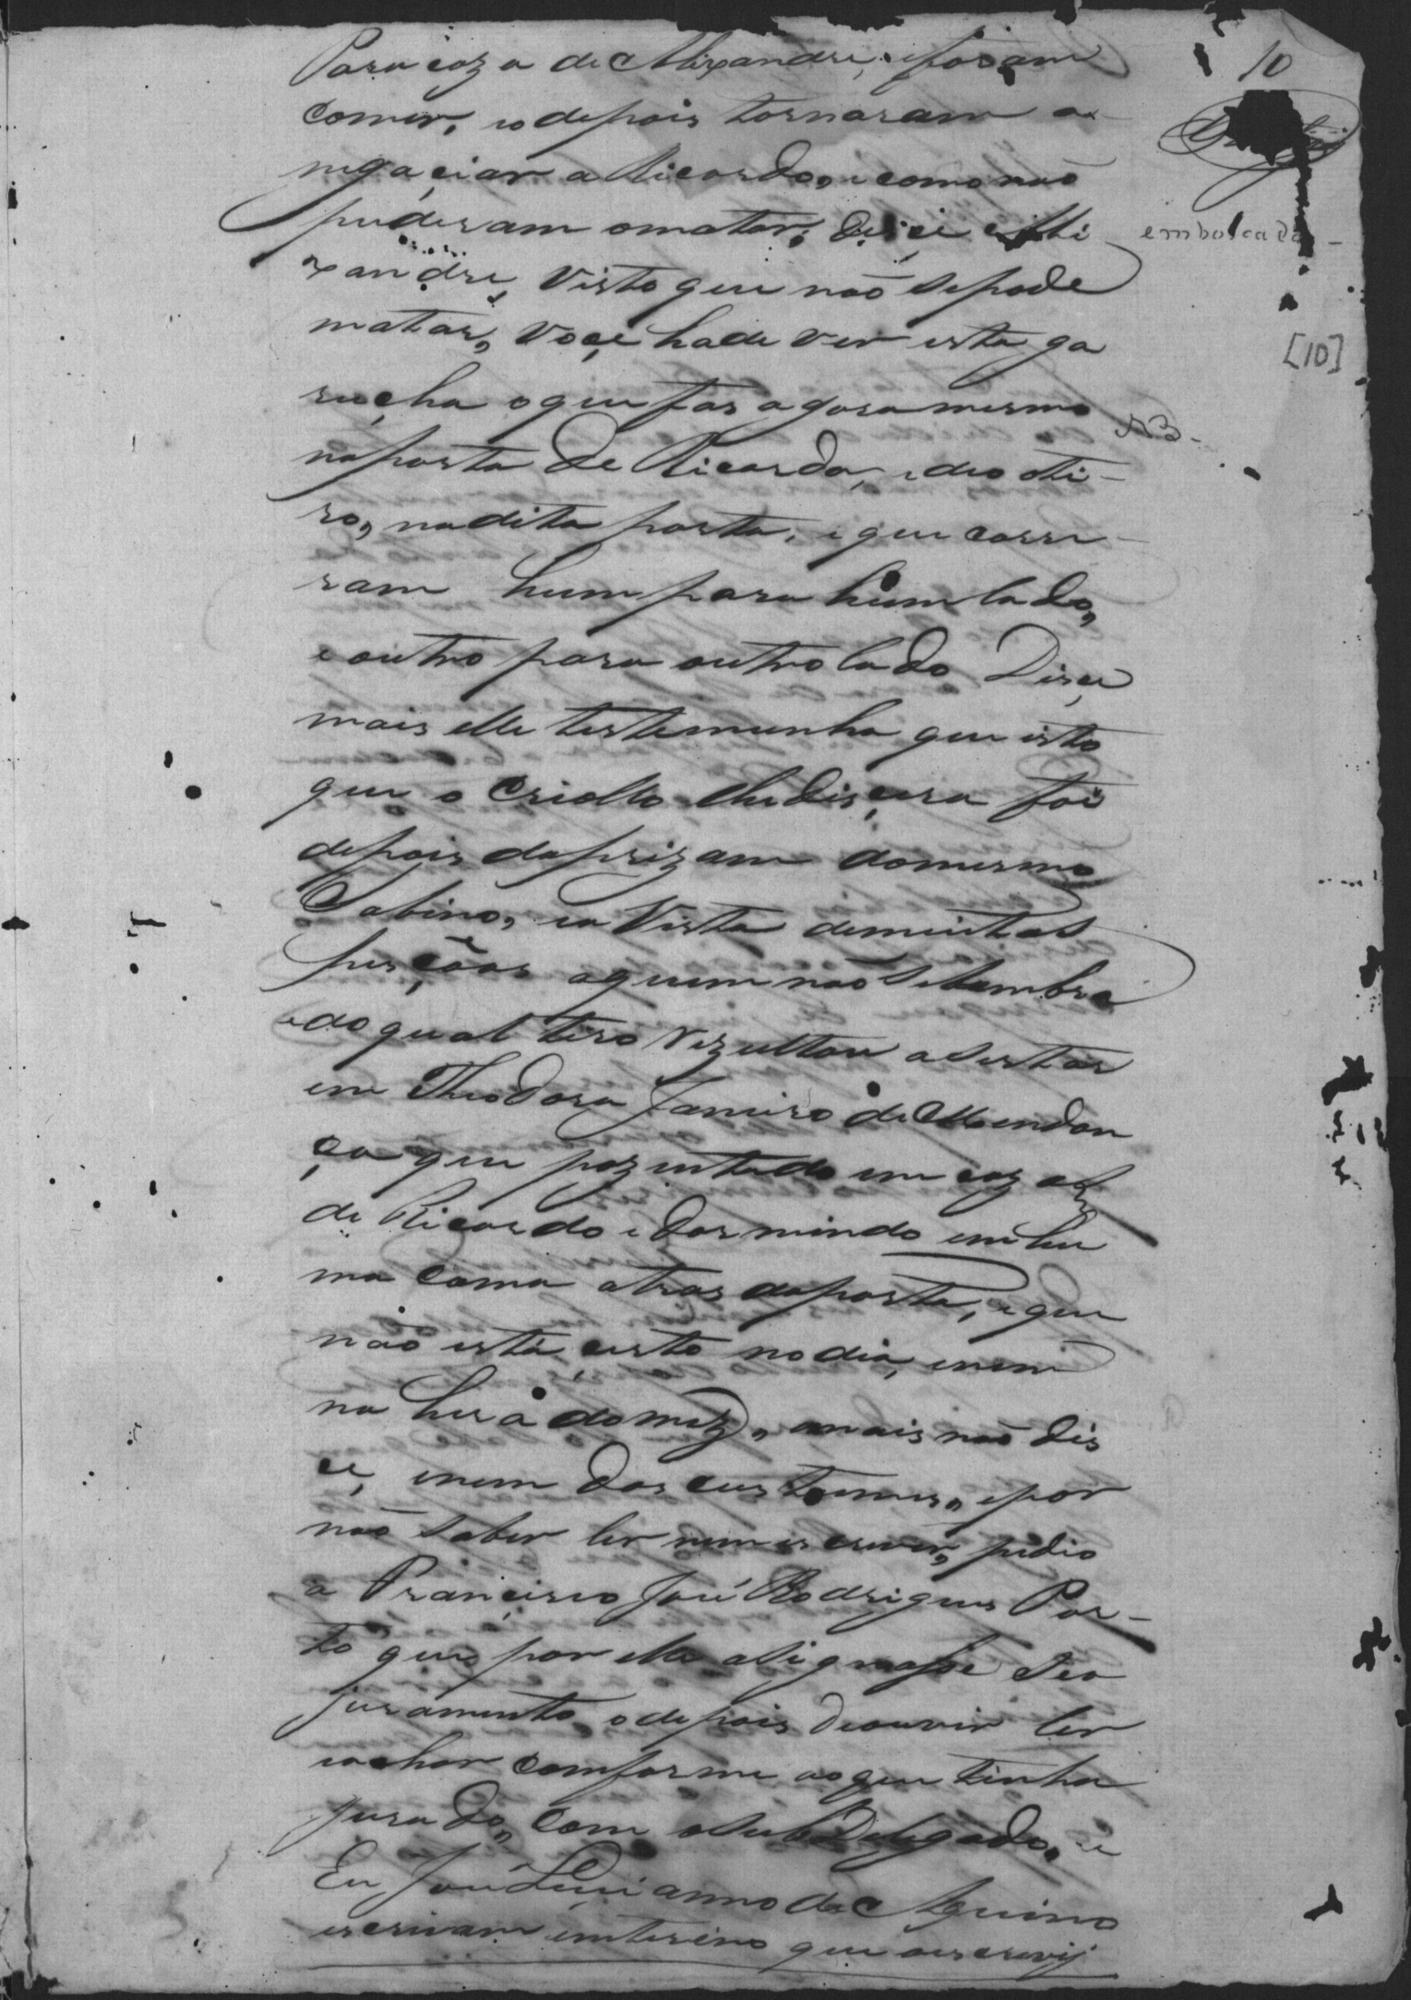 Para caza de Alixandre, e foram
10
comer, e o depois tornaram a
negaciar a Ricardo, e como não
puderam omatar, disce Ali
embolcada
xandre, Visto que não sepode
matar, voçe hade ver esta ga
[10]
rucha oque fas agora mesmo
naporta de Ricardo, e deo oti-
ro, na dita porta, e que corre-
ram hum para hum lado,
e outro para outro lado Disce
mais elle testemunha que isto
que o Criollo lhe discera foi
depois daprizam domesmo
Sabino, e a Vista demuitas
pesçõas aquem não selembra
e do qual tiro rezultou asertar
em Theodora Janeiro de Mendon
ça que pozentado em caza
de Ricardo e dormindo em hu
ma cama atras daporta, e que
não está, certo no dia, enem
na hera do mez, emais não dis
ce, enem dos custumes, epor
não saber ler nem escrever, pedio
a Francisco José Rodrigues Por-
to que por elle asignasse seo
juramento, e depois deouvir ler
e achar comforme aoque tinha
jurado, com o SubDelegado, e
Eu José Luçianno de Aquino
escrivam intirino que oescrevij